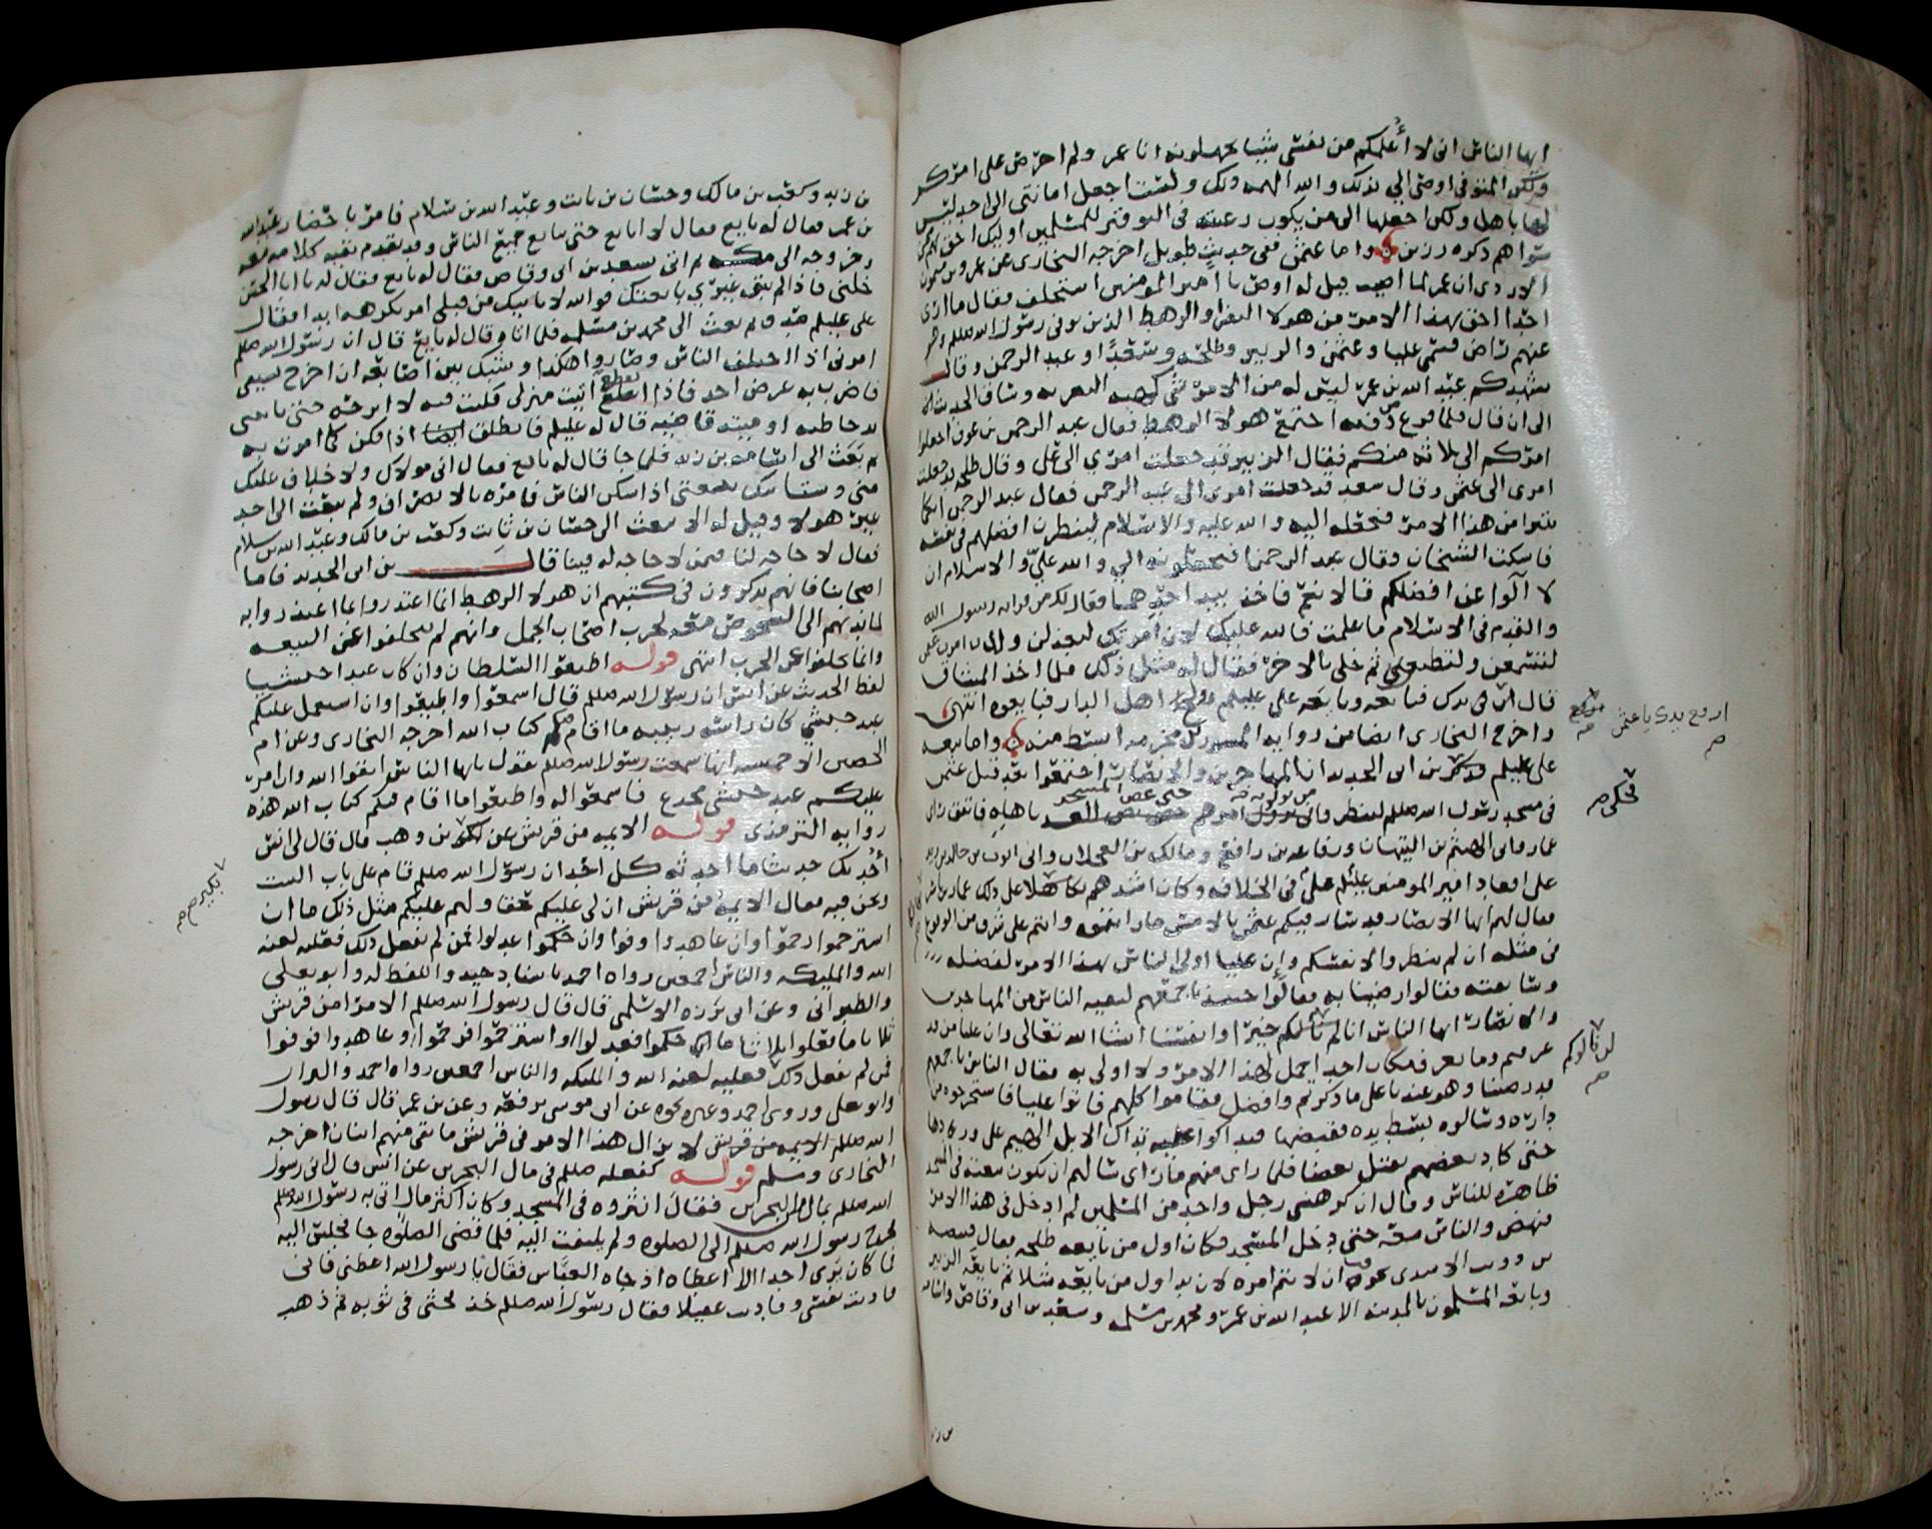 ايها الناس انى لا أُعلمكم من نفسى شيئا تجهلونه انا عمر ولم احرص على امركم
ولكن المتوفى اوصى الي بذلك والله الهمه ذلك ولست اجعل امانتى الى احد ليس
لها باهل ولكن اجعلها الى من يكون رغبته فى التوقير للمسلمين اوليك احق بهم ممن
سواهم ذكره رزين واما عثمن ففى حديث طويل اخرجه البخارى عن عمرو بن ميمون
الاودى ان عمر لما اصيب قيل له اوص يا امير المومنين استخلف فقال ما ارى
احدا احق بهذا الامر من هولا النفر او الرهط الذين توفى رسول الله صللم وهو
عنهم راض فسمى عليا وعثمن والزبير وطلحه وسعدًا وعبد الرحمن وقال
يشهدكم عبد الله بن عمر ليس له من الامر شى كهيه التعزيه وساق الحديث
الى ان قال فلما فرغ من دفنه اجتمع هولا الرهط فقال عبد الرحمن بن عوف اجعلوا
امركم الى ثلاثه منكم فقال الزبير قد جعلت امري الى على وقال طلحه قد جعلت
امرى الى عثمن وقال سعد قد جعلت امرى الى عبد الرحمن فقال عبد الرحمن ايكما
تبرا من هذا الامر فنجعله اليه والله عليه والاسلام لينظرن افضلهم فى نفسه
فاسكت الشيخان وقال عبد الرحمن افتجعلونه الي والله عليّ والاسلام ان
لا آلوا عن افضلكم قالا نعم فاخذ بيد احدهما فقال لك من قرابه رسول الله
والقدم فى الاسلام ما علمت فالله عليك لان امرتك لتعدلن ولان امرت عليك
لتسمعن ولتطيعن ثم خلى بالاخر فقال له مثل ذلك فلما اخذ الميثاق
قال ارفع يدك فبايعه وبايعه على عليلم وولج اهل الدار فبايعوه انتهى
واخرج البخارى ايضا من روايه المسور بن مخرمه ابسط منه واما بيعه
على عليلم فذكر بن ابى الحديد ان المهاجرين والانصار اجتمعوا بعد قتل عثمن
فى مسجد رسول الله صللم لينظروا من يولونه امرهم حتى غص المسجد باهله فاتفق راى
عمار وابى الهيثم بن التيهان ورفاعه بن رافع ومالك بن العجلان وابى ايوب بن خالد بن زيد
على اقعاد امير المومنين عليلم على فى الخلافه وكان اشدهم تهالكا على ذلك عمار بن ياسر
فقال لهم ايها الانصار قد سار فيكم عثمن بالامس ما رايتموه وانتم على شرف من الوقوع
فى مثله ان لم تنظروا لانفسكم وإن عليا اولى الناس بهذا الامر لفضله
وسابقته فقالوا رضينا به فقالوا حينيذ باجمعهم لبقيه الناس من المهاجرين
والانصار ايها الناس انا لم نالكم خيرا وانفسنا انشا الله تعالى وان عليا من قد
عرفتم وما نعرف مكان احد احمل لهذا الامر ولا اولى به فقال الناس باجمعهم
قد رضينا وهو عندنا على ما ذكرتم وافضل فقاموا كلهم فاتوا عليا فاستخرجوه من
داره وسالوه بسط يده فقبضها فتداكوا عليه تداك الابل الهيم على وردها
حتى كاد بعضهم يقتل بعضا فلما راى منهم ما راى سالهم ان تكون بيعته فى المسجد
ظاهره للناس وقال ان كرهنى رجل واحد من المسلمين لم ادخل فى هذا الامر
فنهض والناس معه حتى دخل المسجد فكان اول من بايعه طلحه فقال قبيصه
بن ذويب الاسدى تخوفت ان لا يتم امره لان يد اول من بايعه شلا ثم بايعه الزبير
وبايعه المسلمون بالمدينه الا عبد الله بن عمر ومحمد بن مسلمه وسعد بن ابى وقاص واسامه
بن زيد
ارفع يدك يا عثمن
بن زيد وكعب بن مالك وحسان بن ثابت وعبد الله بن سلام فامر باحضار عبد الله
بن عمر فقال له بايع فقال لا ابايع حتى يبايع جميع الناس وقد تقدم بقيه كلامه معه
وخروجه الى مكه ثم اتى بسعد بن ابى وقاص فقال له بايع فقال له يا ابا الحسن
خلنى فاذا لم يبق غيري بايعتك فوالله لا ياتيك من قبلى امر تكرهه ابدا فقال
على عليلم صدق ثم بعث الى محمد بن مسلمه فلما اتاه قال له بايع قال ان رسول الله صللم
امرنى اذا اختلف الناس وصاروا هكذا وشبك بين اصابعه ان اخرج بسيفى
فاضرب به عرض احد فاذا انقطع أتيت منزلى فكنت فيه لا ابرحه حتى ياتينى
يد خاطيه او ميته قاضيه قال له عليلم فانطلق اذا فكن كما امرت به
ثم بَعَث الى اسامه بن زيد فلما جا قال له بايع فقال انى مولاك ولا خلاف عليك
منى وستاتيك بيعتى اذا سكن الناس فامره بالانصراف ولم يبعث الى احد
غير هولا وقيل له الا تبعث الى حسان بن ثابت وكعب بن مالك وعبد الله بن سلام
فقال لا حاجه لنا فيمن لا حاجه له فينا قال بن ابى الحديد فاما
اصحابنا فانهم يذكرون فى كتبهم ان هولا الرهط انما اعتذروا بما اعتذروا به
لما ندبهم الى الشخوص معه لحرب اصحاب الجمل وانهم لم يتخلفوا عن البيعه
وانما تخلفوا عن الحرب انتهى قوله اطيعوا السلطان وان كان عبدا حبشيا
لفظ الحديث عن انس ان رسول الله صللم قال اسمعوا واطيعوا وان استعمل عليكم
عبد حبشي كان راسه زبيبه ما اقام فيكم كتاب الله اخرجه البخارى وعن ام
الحصين الاحمسيه انها سمعت رسول الله صللم يقول يايها الناس اتقوا الله وان امر
عليكم عبد حبشى مجدع فاسمعوا له واطيعوا ما اقام فيكم كتاب الله هذه
روايه الترمذى قوله الايمه من قريش عن بكير بن وهب قال قال لى انس
أحدثك حديثا ما احدثه كل احد ان رسول الله صللم قام على باب البيت
ونحن فيه فقال الايمه من قريش ان لى عليكم حقا ولهم عليكم مثل ذلك ما ان
استرحموا رحموا وان عاهدوا وفوا وان حكموا عدلوا فمن لم يفعل ذلك فعليه لعنه
الله والمليكه والناس اجمعين رواه احمد باسناد جيد واللفظ له وابو يعلى
والطبرانى وعن ابى برزه الاسلمى قال قال رسول الله صللم الامرا من قريش
ثلاثا ما فعلوا ثلاثا ما حكموا فعدلوا واسترحموا فرحموا وعاهدوا فوفوا
فمن لم يفعل ذلك فعليه لعنه الله والمليكه والناس اجمعين رواه احمد والبزار
وابو يعلى وروى احمد وغيره نحوه عن ابى موسى يرفعه وعن بن عمر قال قال رسول
الله صللم لا يزال هذا الامر فى قريش ما بقى منهم اثنان اخرجه
البخارى ومسلم قوله كفعله صللم فى مال البحرين عن انس قال اتى رسول
الله صللم بمال من البحرين فقال انثروه فى المسجد وكان اكثر مال اتى به رسول الله صللم
فخرج رسول الله صللم الى الصلوه ولم يلتفت اليه فلما قضى الصلوه جا فجلس اليه
فما كان يرى احدا الا اعطاه اذ جاه العباس فقال يا رسول الله اعطنى فانى
فاديت نفسى وفاديت عقيلا فقال رسول الله صللم خذ فحثى فى ثوبه ثم ذهب
بكير